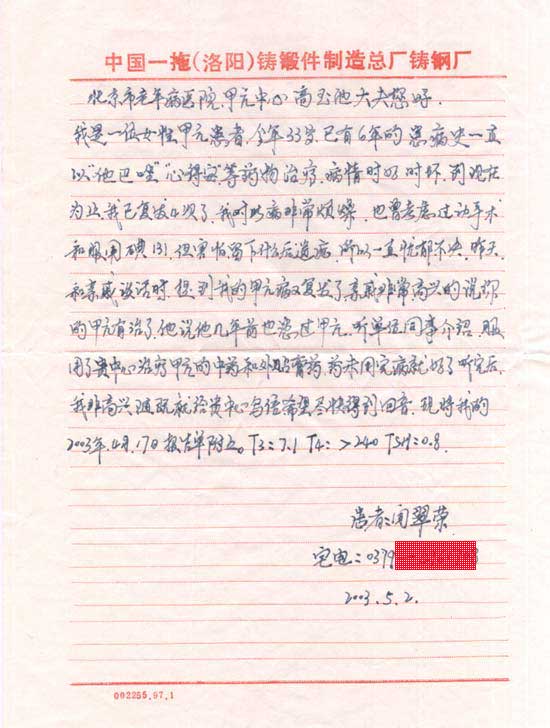 中国一拖(洛阳)铸锻件制造总厂铸钢厂
北京市老年病医院,甲亢中心高玉池大夫您好.
我是一位女性甲亢患者,今年33岁,已有6年的患病史一直
以"他巴唑""心得安"等药物治疗,病情时好时坏,到现在
为止我已复发4次了,我对此病非常烦燥,也曾考虑过动手术
和服用碘131,但害怕留下什么后遗症,所以一直忧郁不决,昨天
和亲戚谈话时,提到我的甲亢病又复发了,亲戚非常高兴的说你
的甲亢有治了,他说他几年前也患过甲亢,听单位同事介绍,服
用了贵中心治疗甲亢的中药和外贴膏药,药未用完病就好了听完后,
我非高兴随既就给贵中心写信希望尽快得到回音,现将我的
2003年4月17日报告单附上。T3=7.1 T4: >240 TSH=0.8.
患者:闫翠荣
宅电:0379
2003.5.2.
002255.97.1